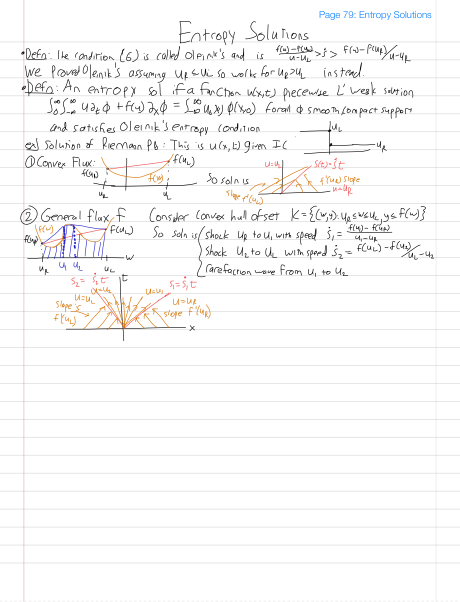 Page 79: Entropy Solutions
Entropy Solutions
• Defn: The condition (6) is called Oleinik's and is f(u)-f(u_L)/u-u_L > ṡ > f(u)-f(u_R)/u-u_R
We proved Oleinik's assuming u_R ≤ u_L so works for u_R > u_L instead.
• Defn: An entropy sol if a function u(x,t) piecewise C¹ weak solution
∫₀^∞ ∫_{-∞}^∞ u∂_tϕ + f(u)∂_xϕ = ∫_{-∞}^∞ u₀(x)ϕ(x,0) for all ϕ smooth compact support
and satisfies Oleinik's entropy condition
ex) Solution of Riemann Pb: This is u(x,t) given IC
u_L
u_R
① Convex Flux:
f(u_R)
f(u_L)
f(u)
u_R
u_L
So soln is
u=u_L
s(t)=ṡt
f'(u_R) slope
u=u_R
slope f'(u_L)
② General flux, f
Consider convex hull of set K = {(w,y): u_R ≤ w ≤ u_L, y ≤ f(w)}
f(u_R)
f(u)
f(u_L)
u_R
u_1
u_2
u_L
w
So soln is
Shock u_R to u_1 with speed ṡ_1 = f(u_1)-f(u_R)/u_1-u_R
Shock u_2 to u_L with speed ṡ_2 = f(u_L)-f(u_2)/u_L-u_2
rarefaction wave from u_1 to u_2
s_2 = ṡ_2t
t
s_1=ṡ_1t
u=u_2
u=u_1
u=u_L
u=u_R
slope's f'(u_L)
slope f'(u_R)
x